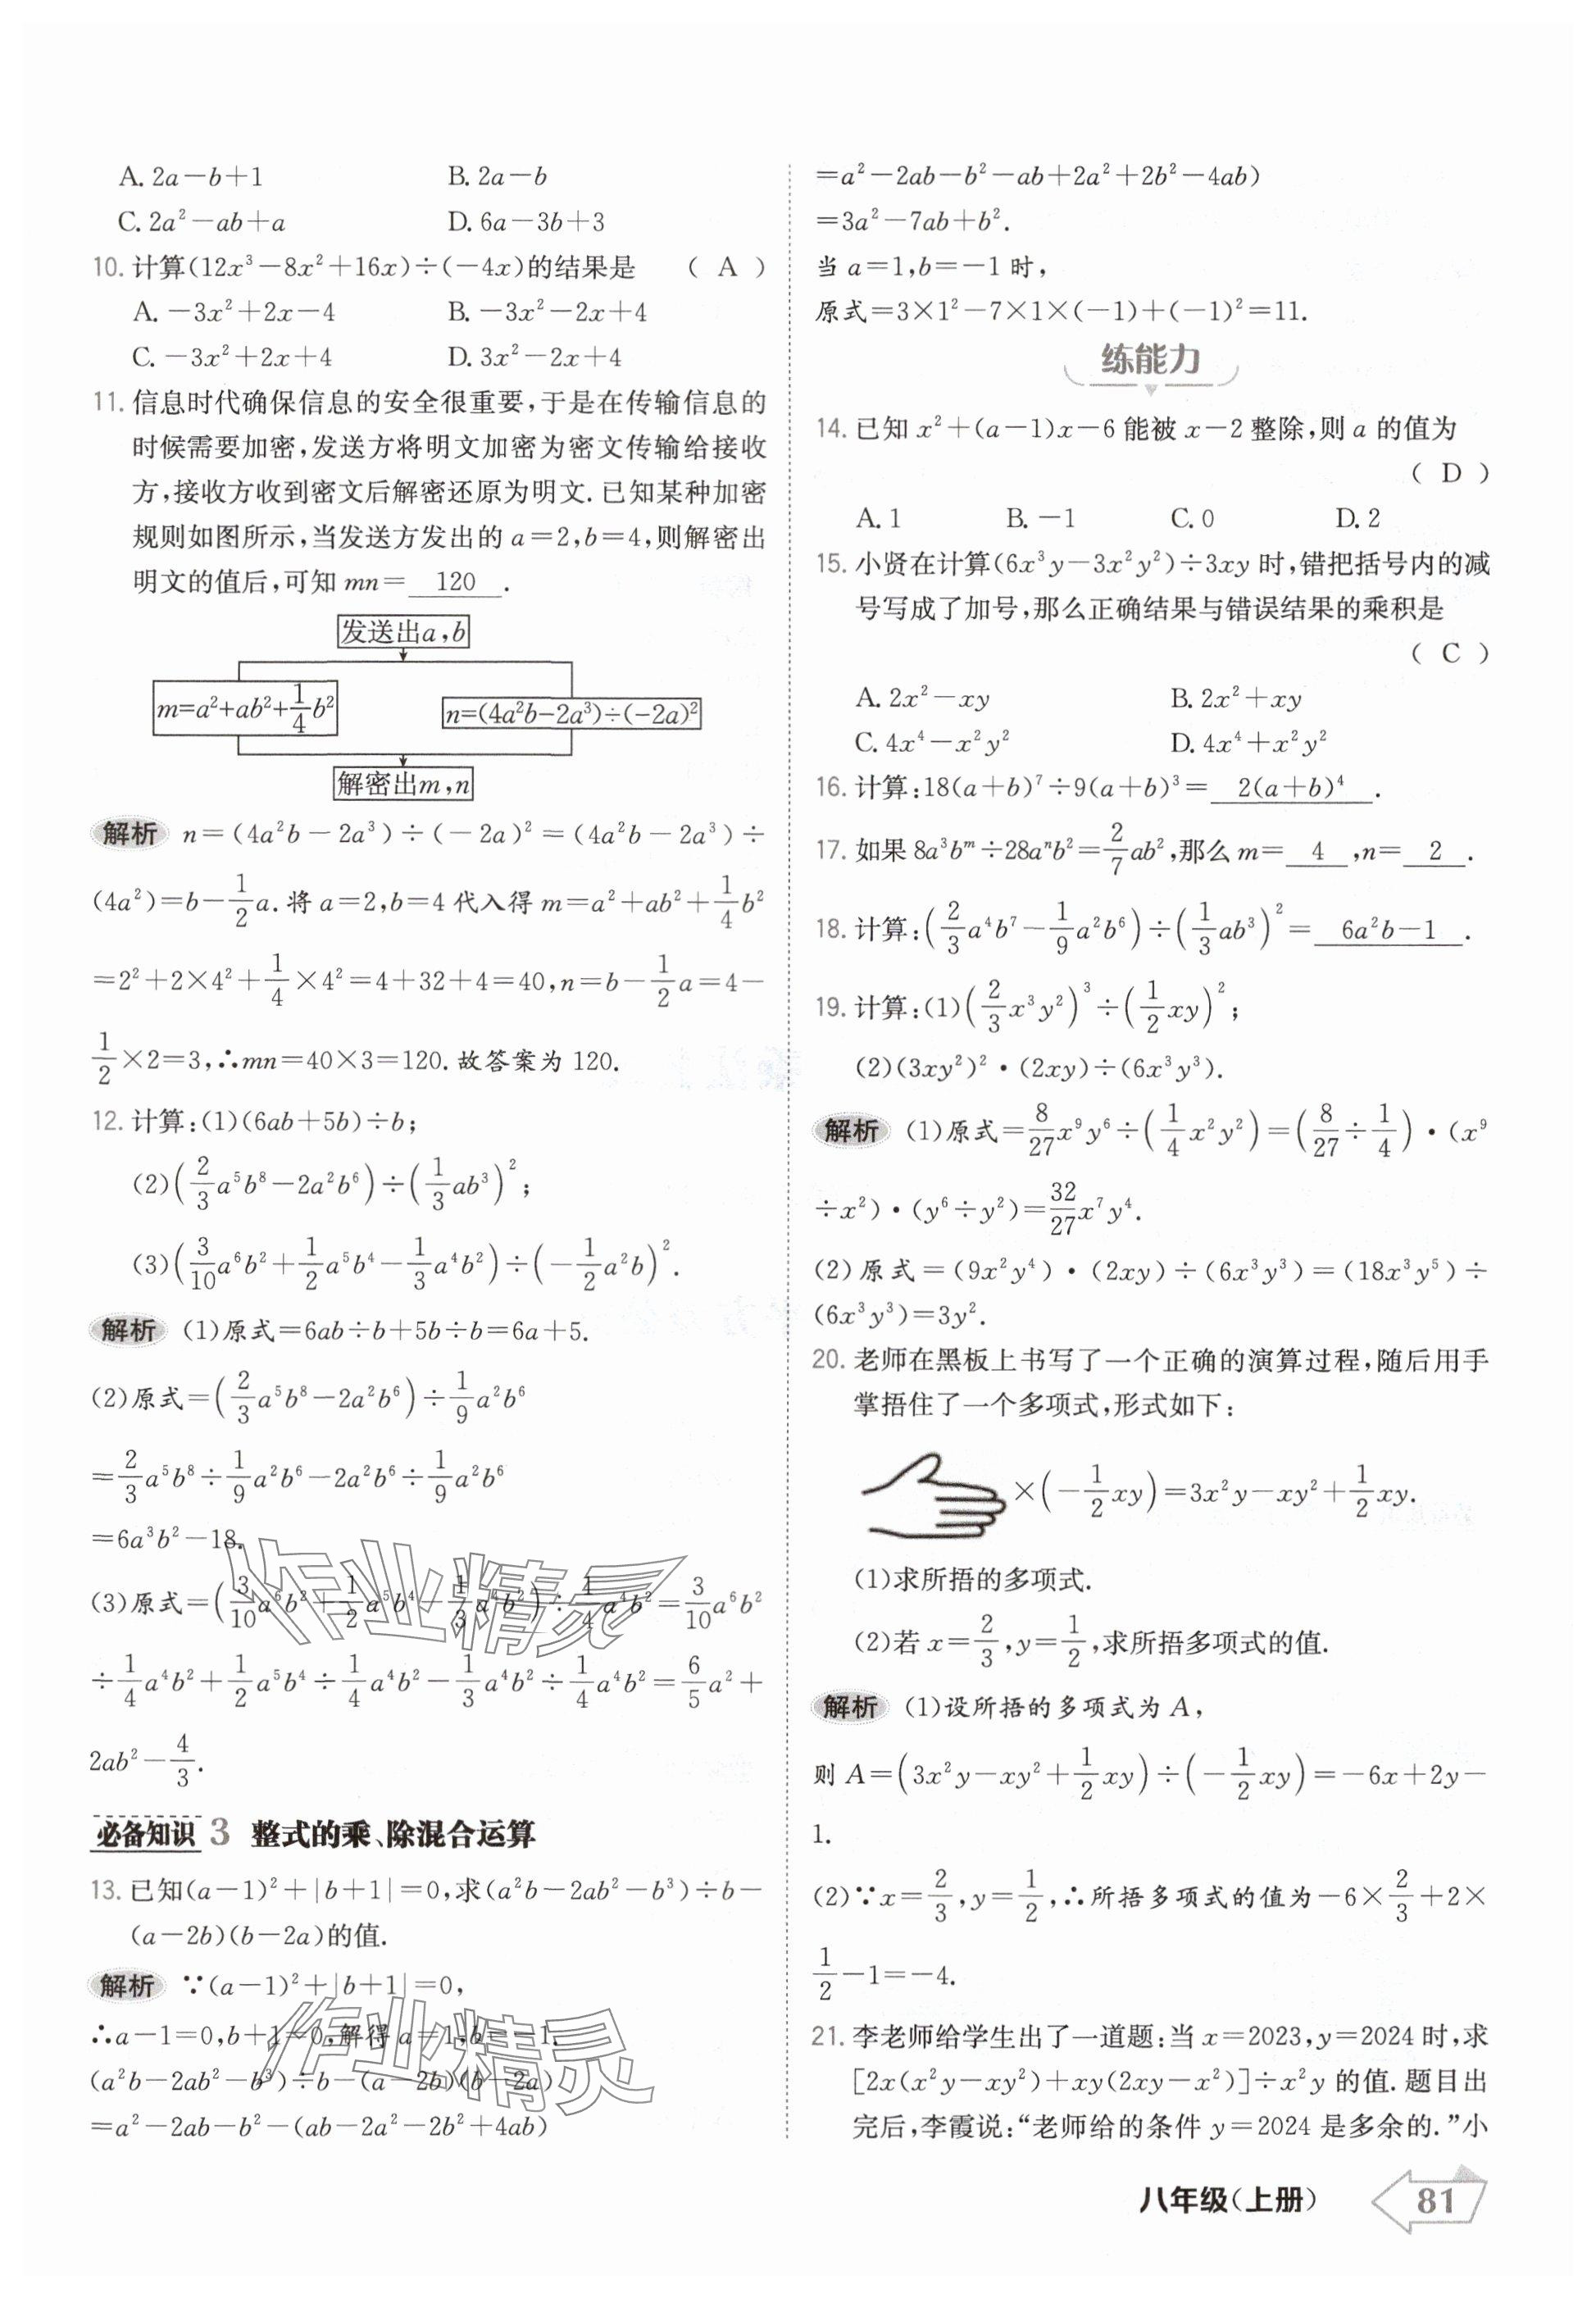 A. 2a－b＋1　B. 2a－b
C. 2a²－ab＋a　D. 6a－3b＋3
10. 计算(12x³－8x²＋16x)÷(－4x)的结果是　( A )
A. －3x²＋2x－4　B. －3x²－2x＋4
C. －3x²＋2x＋4　D. 3x²－2x＋4
11. 信息时代确保信息的安全很重要,于是在传输信息的
时候需要加密,发送方将明文加密为密文传输给接收
方,接收方收到密文后解密还原为明文. 已知某种加密
规则如图所示,当发送方发出的 a＝2,b＝4,则解密出
明文的值后,可知 mn＝ 120 .
发送出a,b
m=a²+ab²+\frac{1}{4}b²　n=(4a²b-2a³)÷(-2a)²
解密出m,n
解析 n＝(4a²b－2a³)÷(－2a)²＝(4a²b－2a³)÷
(4a²)＝b－\frac{1}{2}a. 将 a＝2,b＝4 代入得 m＝a²＋ab²＋\frac{1}{4}b²
＝2²＋2×4²＋\frac{1}{4}×4²＝4＋32＋4＝40,n＝b－\frac{1}{2}a＝4－
\frac{1}{2}×2＝3,∴mn＝40×3＝120. 故答案为 120.
12. 计算:(1)(6ab＋5b)÷b;
(2)(\frac{2}{3}a⁵b⁸－2a²b⁶)÷(\frac{1}{3}ab³)²;
(3)(\frac{3}{10}a⁶b²＋\frac{1}{2}a⁵b⁴－\frac{1}{3}a⁴b²)÷(－\frac{1}{2}a²b)².
解析 (1)原式＝6ab÷b＋5b÷b＝6a＋5.
(2)原式＝(\frac{2}{3}a⁵b⁸－2a²b⁶)÷\frac{1}{9}a²b⁶
＝\frac{2}{3}a⁵b⁸÷\frac{1}{9}a²b⁶－2a²b⁶÷\frac{1}{9}a²b⁶
＝6a³b²－18.
(3)原式＝(\frac{3}{10}a⁶b²＋\frac{1}{2}a⁵b⁴－\frac{1}{3}a⁴b²)÷\frac{1}{4}a⁴b²＝\frac{3}{10}a⁶b²
÷\frac{1}{4}a⁴b²＋\frac{1}{2}a⁵b⁴÷\frac{1}{4}a⁴b²－\frac{1}{3}a⁴b²÷\frac{1}{4}a⁴b²＝\frac{6}{5}a²＋
2ab²－\frac{4}{3}.
作业精灵
必备知识 3 整式的乘、除混合运算
13. 已知(a－1)²＋|b＋1|＝0,求(a²b－2ab²－b³)÷b－
(a－2b)(b－2a)的值.
解析 ∵(a－1)²＋|b＋1|＝0,
∴a－1＝0,b＋1＝0,解得 a＝1,b＝－1,
(a²b－2ab²－b³)÷b－(a－2b)(b－2a)
＝a²－2ab－b²－(ab－2a²－2b²＋4ab)
作业精灵
＝a²－2ab－b²－ab＋2a²＋2b²－4ab)
＝3a²－7ab＋b².
当 a＝1,b＝－1 时,
原式＝3×1²－7×1×(－1)＋(－1)²＝11.
练能力
14. 已知 x²＋(a－1)x－6 能被 x－2 整除,则 a 的值为
( D )
A. 1　B. －1　C. 0　D. 2
15. 小贤在计算(6x³y－3x²y²)÷3xy 时,错把括号内的减
号写成了加号,那么正确结果与错误结果的乘积是
( C )
A. 2x²－xy　B. 2x²＋xy
C. 4x⁴－x²y²　D. 4x⁴＋x²y²
16. 计算:18(a＋b)⁷÷9(a＋b)³＝ 2(a＋b)⁴ .
17. 如果 8a³bᵐ÷28aⁿb²＝\frac{2}{7}ab²,那么 m＝ 4 ,n＝ 2 .
18. 计算:(\frac{2}{3}a⁴b⁷－\frac{1}{9}a²b⁶)÷(\frac{1}{3}ab³)²＝ 6a²b－1 .
19. 计算:(1)(\frac{2}{3}x³y²)³÷(\frac{1}{2}xy)²;
(2)(3xy²)²·(2xy)÷(6x³y³).
解析 (1)原式＝\frac{8}{27}x⁹y⁶÷(\frac{1}{4}x²y²)＝(\frac{8}{27}÷\frac{1}{4})·(x⁹
÷x²)·(y⁶÷y²)＝\frac{32}{27}x⁷y⁴.
(2)原式＝(9x²y⁴)·(2xy)÷(6x³y³)＝(18x³y⁵)÷
(6x³y³)＝3y².
20. 老师在黑板上书写了一个正确的演算过程,随后用手
掌捂住了一个多项式,形式如下:
×(－\frac{1}{2}xy)＝3x²y－xy²＋\frac{1}{2}xy.
(1)求所捂的多项式.
(2)若 x＝\frac{2}{3},y＝\frac{1}{2},求所捂多项式的值.
解析 (1)设所捂的多项式为 A,
则 A＝(3x²y－xy²＋\frac{1}{2}xy)÷(－\frac{1}{2}xy)＝－6x＋2y－
1.
(2)∵x＝\frac{2}{3},y＝\frac{1}{2},∴所捂多项式的值为－6×\frac{2}{3}＋2×
\frac{1}{2}－1＝－4.
21. 李老师给学生出了一道题:当 x＝2023,y＝2024 时,求
[2x(x²y－xy²)＋xy(2xy－x²)]÷x²y 的值. 题目出
完后,李霞说:“老师给的条件 y＝2024 是多余的.”小
八年级(上册)　81